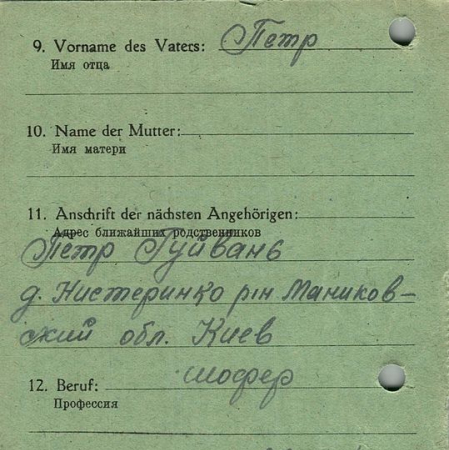 9. Vorname des Vaters: Петр
Имя отца
10. Name der Mutter:
Имя матери
11. Anschrift der nächsten Angehörigen:
Адрес ближайших родственников
Петр Гуйвань
д. Нистеринко рін Маников-
ский обл. Киев
12. Beruf: шофер
Профессия